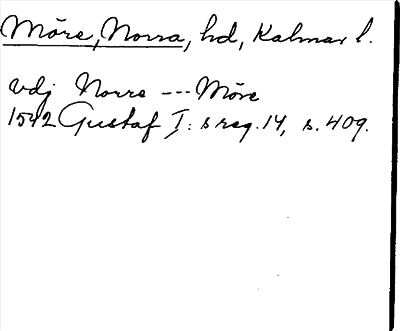 Möre, Norra, hd, Kalmar l.
vdj Norre --- Möre
1542 Gustaf I: s reg. 14, s. 409.